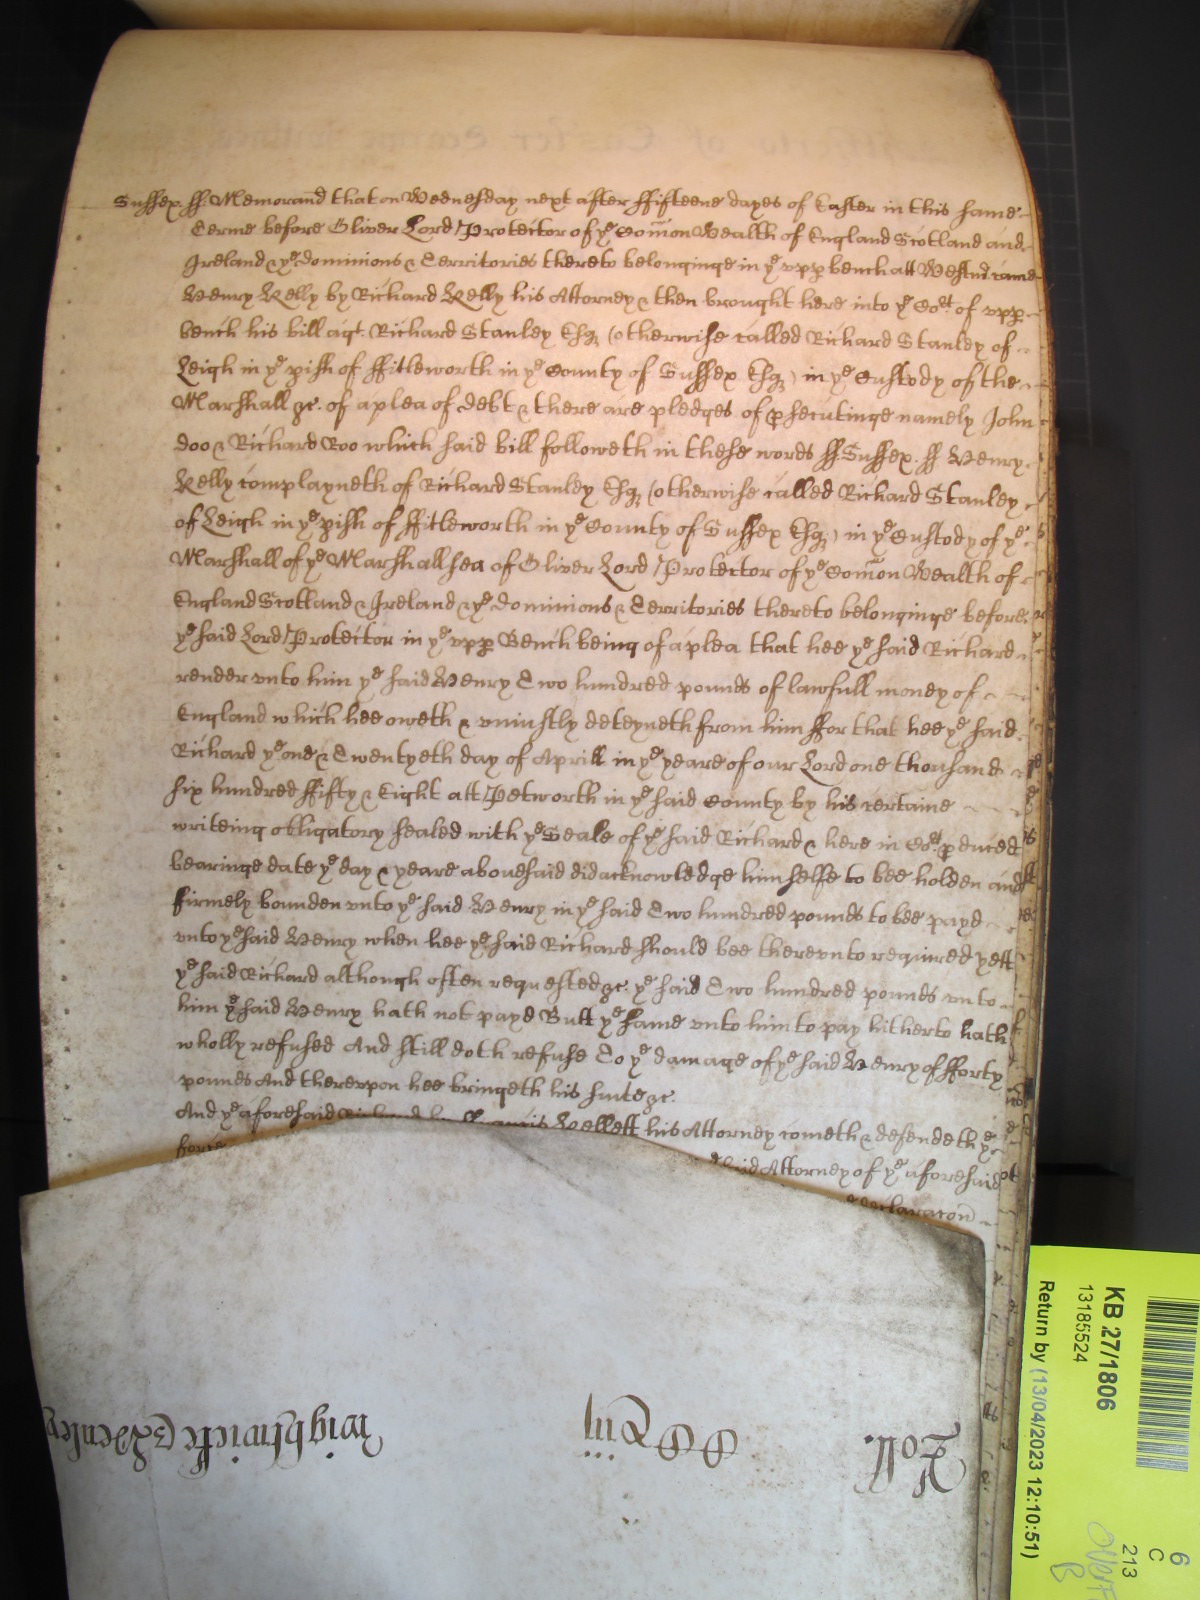 Sussex. ff Memorand that on Wednesday next after ffifteene dayes of Easter in this same
Terme before Oliver Lord Protector of ye Comon Wealth of England Scotland and
Ireland & ye dominions & Territories thereto belonginge in ye upp bench att Westm came
Henry Kelly by Richard Kelly his Attorney & then brought here into ye Cort of upp
bench his bill agt Richard Stanley Esq (otherwise called Richard Stanley of
Leigh in ye pish of ffitleworth in ye County of Sussex Esq) in ye Custody of the
Marshall &c. of a plea of debt & there are pledges of psecutinge namely John
doo & Richard Roo which said bill followeth in these words ff Sussex. ff Henry
Kelly complayneth of Richard Stanley Esq (otherwise called Richard Stanley
of Leigh in ye pish of ffitleworth in ye County of Sussex Esq) in ye Custody of ye
Marshall of ye Marshallsea of Oliver Lord Protector of ye Comon Wealth of
England Scotland & Ireland & ye dominions & Territories thereto belonginge before
ye said Lord Protector in ye upp Bench being of a plea that hee ye said Richard
render unto him ye said Henry Two hundred pounds of lawfull money of
England which hee oweth & uniustly deteyneth from him ffor that hee ye said
Richard ye one & Twentyeth day of Aprill in ye yeare of our Lord one thousand
six hundred ffifty & Eight att Petworth in ye said County by his certaine
writeing obligatory sealed with ye Seale of ye said Richard & here in Cort pduced
bearinge date ye day & yeare abouesaid did acknowledge himselfe to bee holden and
firmely bounden unto ye said Henry in ye said Two hundred pounds to bee payd
unto ye said Henry when hee ye said Richard should bee thereunto required yett
ye said Richard although often requested &c. ye said Two hundred pounds unto
him ye said Henry hath not payd Butt ye same unto him to pay hitherto hath
wholly refused And still doth refuse To ye damage of ye said Henry of fforty
pounds And thereupon hee bringeth his suite &c.
And ye aforesaid Richard by Kellett his Attorney cometh & defendeth ye
force
said Attorney of ye aforesaid
declaracon
Roll.
wightwicke & Henley
KB 27/1806
13185524
Return by (13/04/2023 12:10:51)
6
C
213